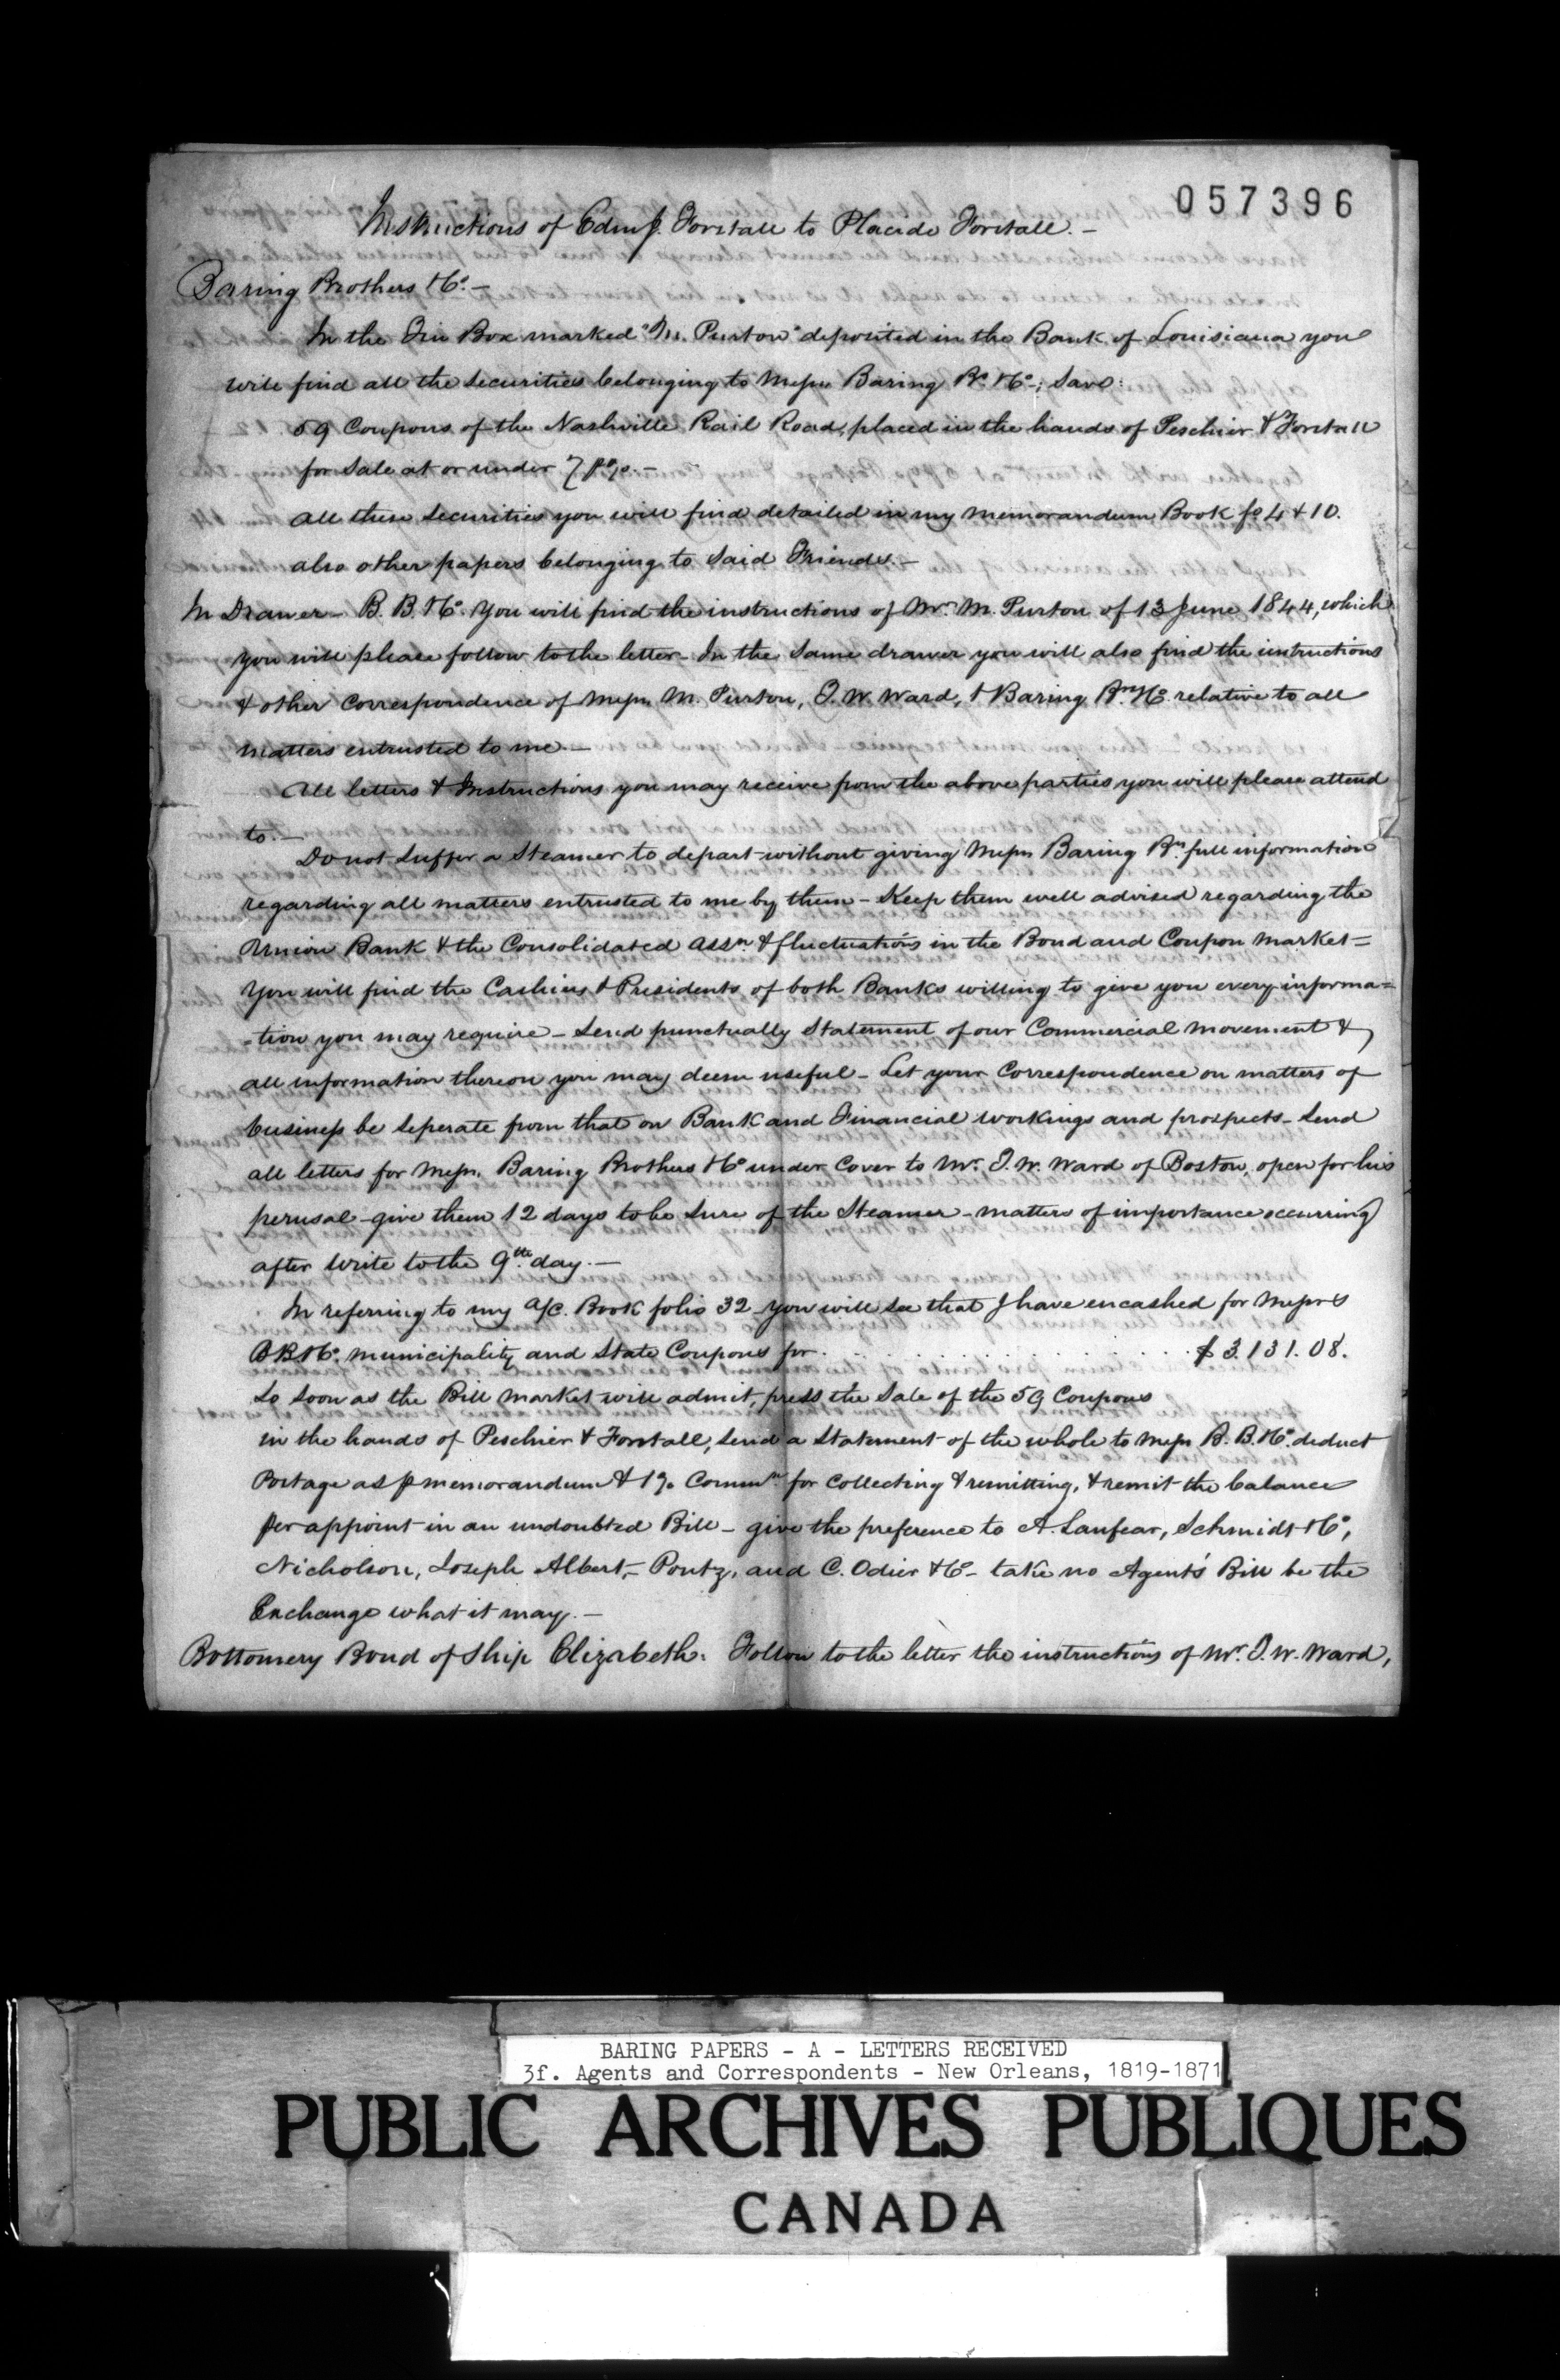 057396
Instructions of Edm. J. Forstall to Placide Forstall. –
Baring Brothers & Co. –
In the Tin Box marked "M. Purton" deposited in the Bank of Louisiana you
will find all the securities belonging to Messrs Baring Bs. & Co.; Save:
59 Coupons of the Nashville Rail Road, placed in the hands of Peschier & Forstall
for Sale at or under 7 p%. –
all these securities you will find detailed in my memorandum Book fo 4 & 10.
also other papers belonging to said Friends. –
In Drawer – B. B. & Co. You will find the instructions of Mr. M. Purton of 13 June 1844, which
you will please follow to the letter – In the same drawer you will also find the instructions
& other Correspondence of Messrs M. Purton, T. W. Ward, & Baring Brs. & Co. relative to all
matters entrusted to me –
All letters & Instructions you may receive from the above parties you will please attend
to. –
Do not suffer a Steamer to depart without giving Messrs Baring Brs. full information
regarding all matters entrusted to me by them – Keep them well advised regarding the
Union Bank & the Consolidated Assn. & fluctuations in the Bond and Coupon market =
You will find the Cashiers & Presidents of both Banks willing to give you every informa=
=tion you may require – Send punctually Statement of our Commercial movement &
all information thereon you may deem useful – Let your Correspondence on matters of
business be seperate from that on Bank and Financial workings and prospects – Send
all letters for Messrs. Baring Brothers & Co under Cover to Mr. T. W. Ward of Boston, open for his
perusal – give them 12 days to be sure of the Steamer – matters of importance occurring
after write to the 9th. day. –
In referring to my a/c. Book folio 32 you will see that I have encashed for Messrs
B B & Co. Municipality and State Coupons for . . . . . . . . . . $ 3.131.08.
So soon as the Bill market will admit, press the Sale of the 59 Coupons
in the hands of Peschier & Forstall, send a Statement of the whole to Messrs B. B. & Co. deduct
Postage as p memorandum & 1% Commn. for collecting & remitting, & remit the balance
per appoint in an undoubted Bill – give the preference to A. Lanfear, Schmidt & Co,
Nicholson, Joseph Albert, – Pontz, and C. Odier & Co – take no Agents' Bill be the
Exchange what it may. –
Bottomery Bond of Ship Elizabeth. Follow to the letter the instructions of Mr. T. W. Ward,
BARING PAPERS - A - LETTERS RECEIVED
3f. Agents and Correspondents - New Orleans, 1819-1871
PUBLIC ARCHIVES PUBLIQUES
CANADA